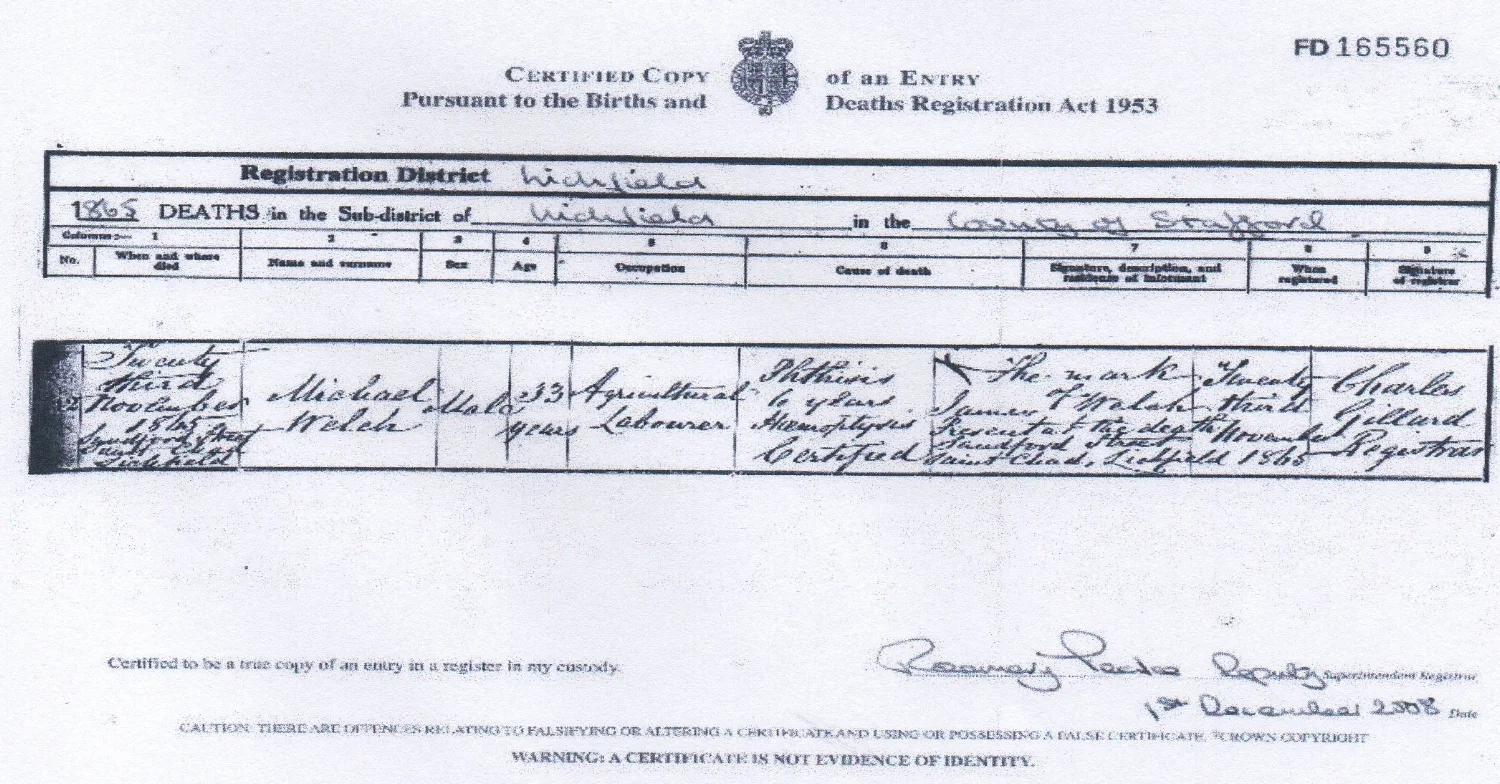 FD 165560
CERTIFIED COPY of an ENTRY
Pursuant to the Births and Deaths Registration Act 1953
Registration District Lichfield
1865 DEATHS in the Sub-district of Lichfield in the County of Stafford
Columns:— 1 2 3 4 5 6 7 8 9
No. When and where died Name and surname Sex Age Occupation Cause of death Signature, description, and residence of informant When registered Signature of registrar
Twenty third November 1865 Sandford Street Saint Chad Lichfield
Michael Welch
Male
33 years
Agricultural Labourer
Phthisis 6 years Haemoptysis Certified
X The mark of James Welch Present at the death Sandford Street Saint Chad, Lichfield
Twenty third November 1865
Charles Gillard Registrar
Certified to be a true copy of an entry in a register in my custody.
Rosemary Deputy Superintendent Registrar
1st December 2008 Date
CAUTION: THERE ARE OFFENCES RELATING TO FALSIFYING OR ALTERING A CERTIFICATE AND USING OR POSSESSING A FALSE CERTIFICATE. ©CROWN COPYRIGHT
WARNING: A CERTIFICATE IS NOT EVIDENCE OF IDENTITY.